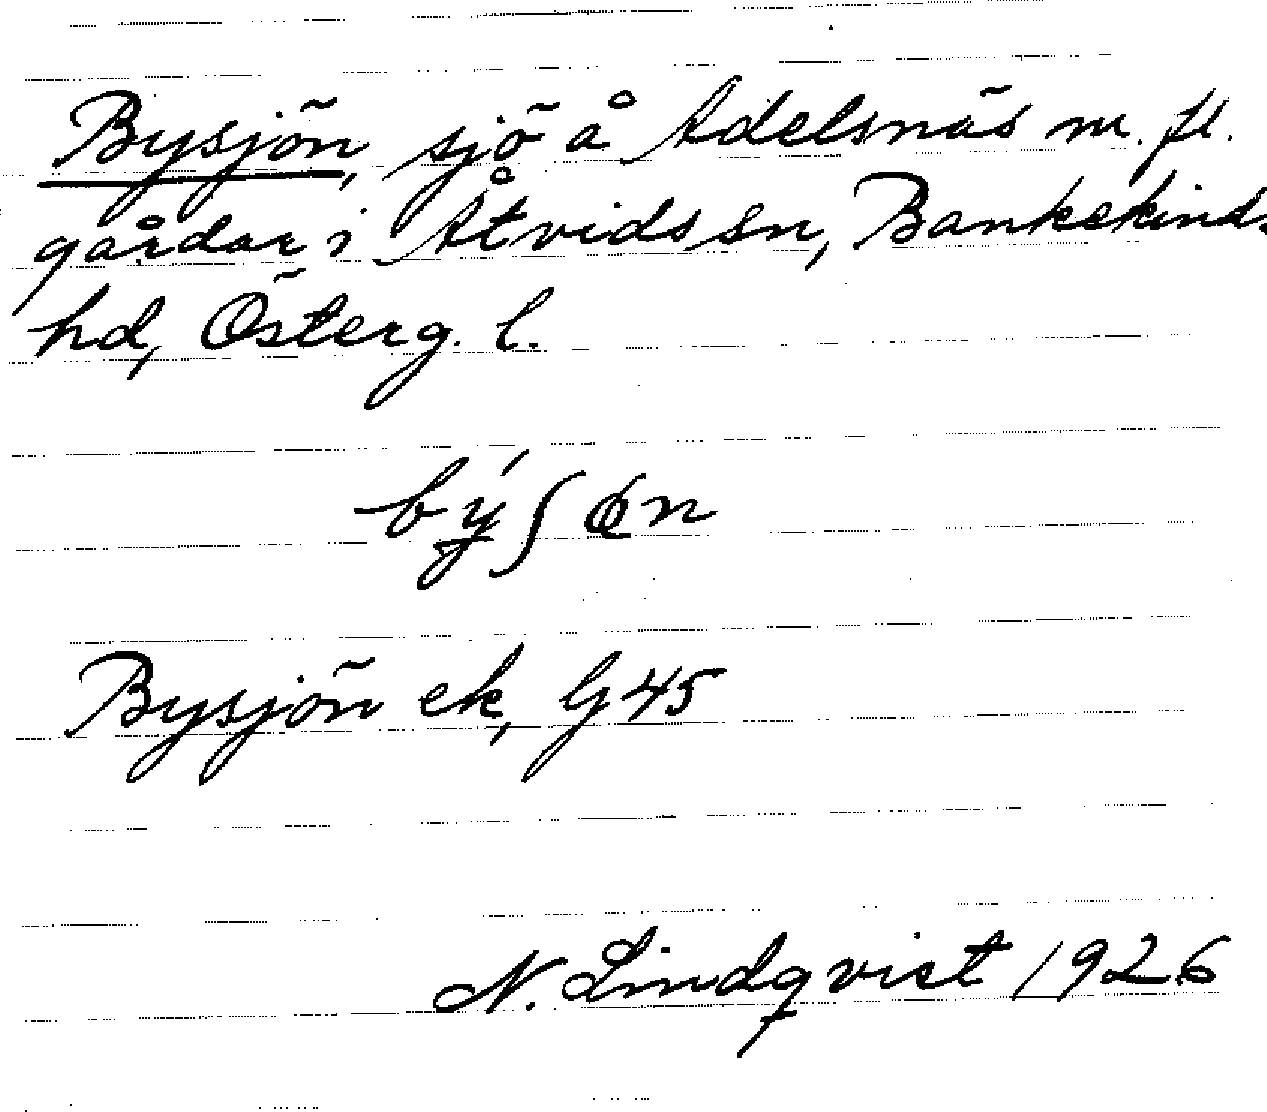 Bysjön, sjö å Adelsnäs m. fl.
gårdar i Åtvids sn, Bankekinds
hd, Österg. l.
Bysjön ek, G45
N. Lindqvist 1926